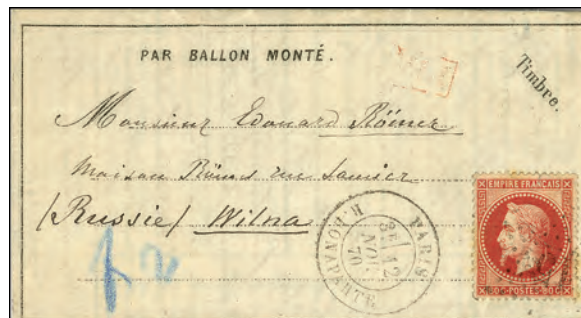 PAR BALLON MONTÉ.
Timbre.
Monsieur Edouard Römer
Maison Römer rue Sanier
(Russie) Wilna
PARIS R. BONAPARTE
3E 12
NOV.
70
EMPIRE FRANÇAIS
80C POSTES 80C